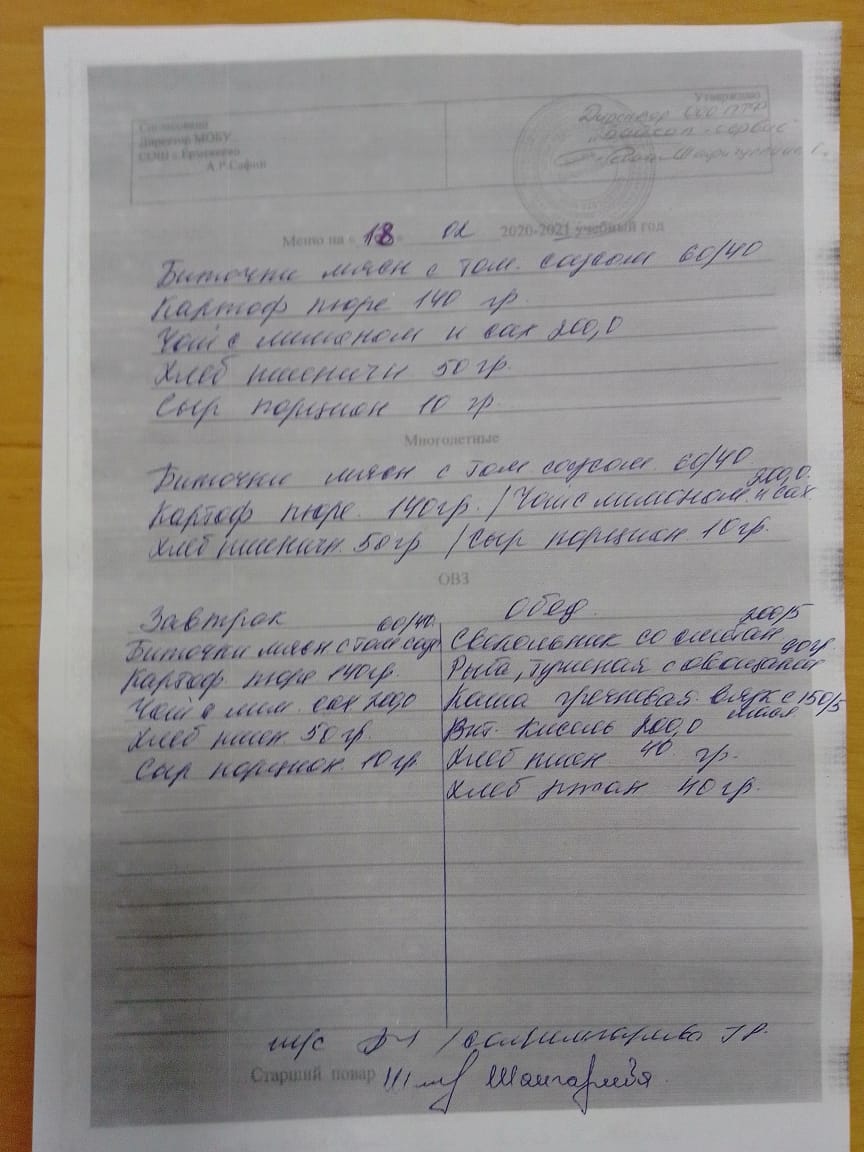 Согласовано
Директор МОБУ
СОШ с.Ермекеево
А.Р.Сафин
Утверждаю
Директор ООО ПТР
"Байсап-сервис"
Меню на « 18 » 02 2020-2021 учебный год
Биточки мясн с том. соусом 60/40
Картоф пюре 140 гр.
Чай с лимоном и сах 200,0
Хлеб пшеничн 50 гр.
Сыр порцион 10 гр.
Многодетные
Биточки мясн с том соусом 60/40
Картоф пюре. 140гр. / Чай с лимоном и сах 200,0.
Хлеб пшеничн. 50гр / Сыр порцион 10гр.
ОВЗ
Завтрак
Биточки мясн с том соус 60/40.
Картоф. пюре 140гр.
Чай с лим. сах 200,0
Хлеб пшен. 50 гр.
Сыр порцион. 10 гр
Обед.
Свекольник со сметан 200/5
Рыба, тушеная с овощами 90гр
Каша гречневая вязк с маслом 150/5
Вит. Кисель 200,0
Хлеб пшен. 40 гр.
Хлеб ржан 40 гр.
Старший повар